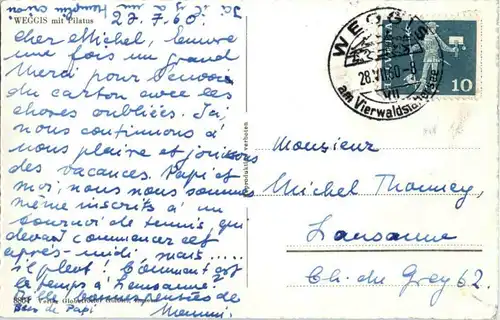 WEGGIS mit Pilatus
27.7.60.
Cher Michel, Encore
une fois un grand
Merci pour l'envoi
du carton avec les
choses oubliées. Ici,
nous continuons à
nous plaire et jouissons
des vacances. Papi et
moi, nous nous sommes
même inscrits à un
tournoi de tennis, qui
devait commencer cet
après-midi mais.....
il pleut! Comment est
le temps à Lausanne?
Bonnes pensées de
Bons de Papi Mammi.
Reproduktion verboten
WEGGIS
28.VII.60-8
am Vierwaldstättersee
HELVETIA
10
Monsieur
Michel Thonney,
Lausanne
Ch. du Grey 62.